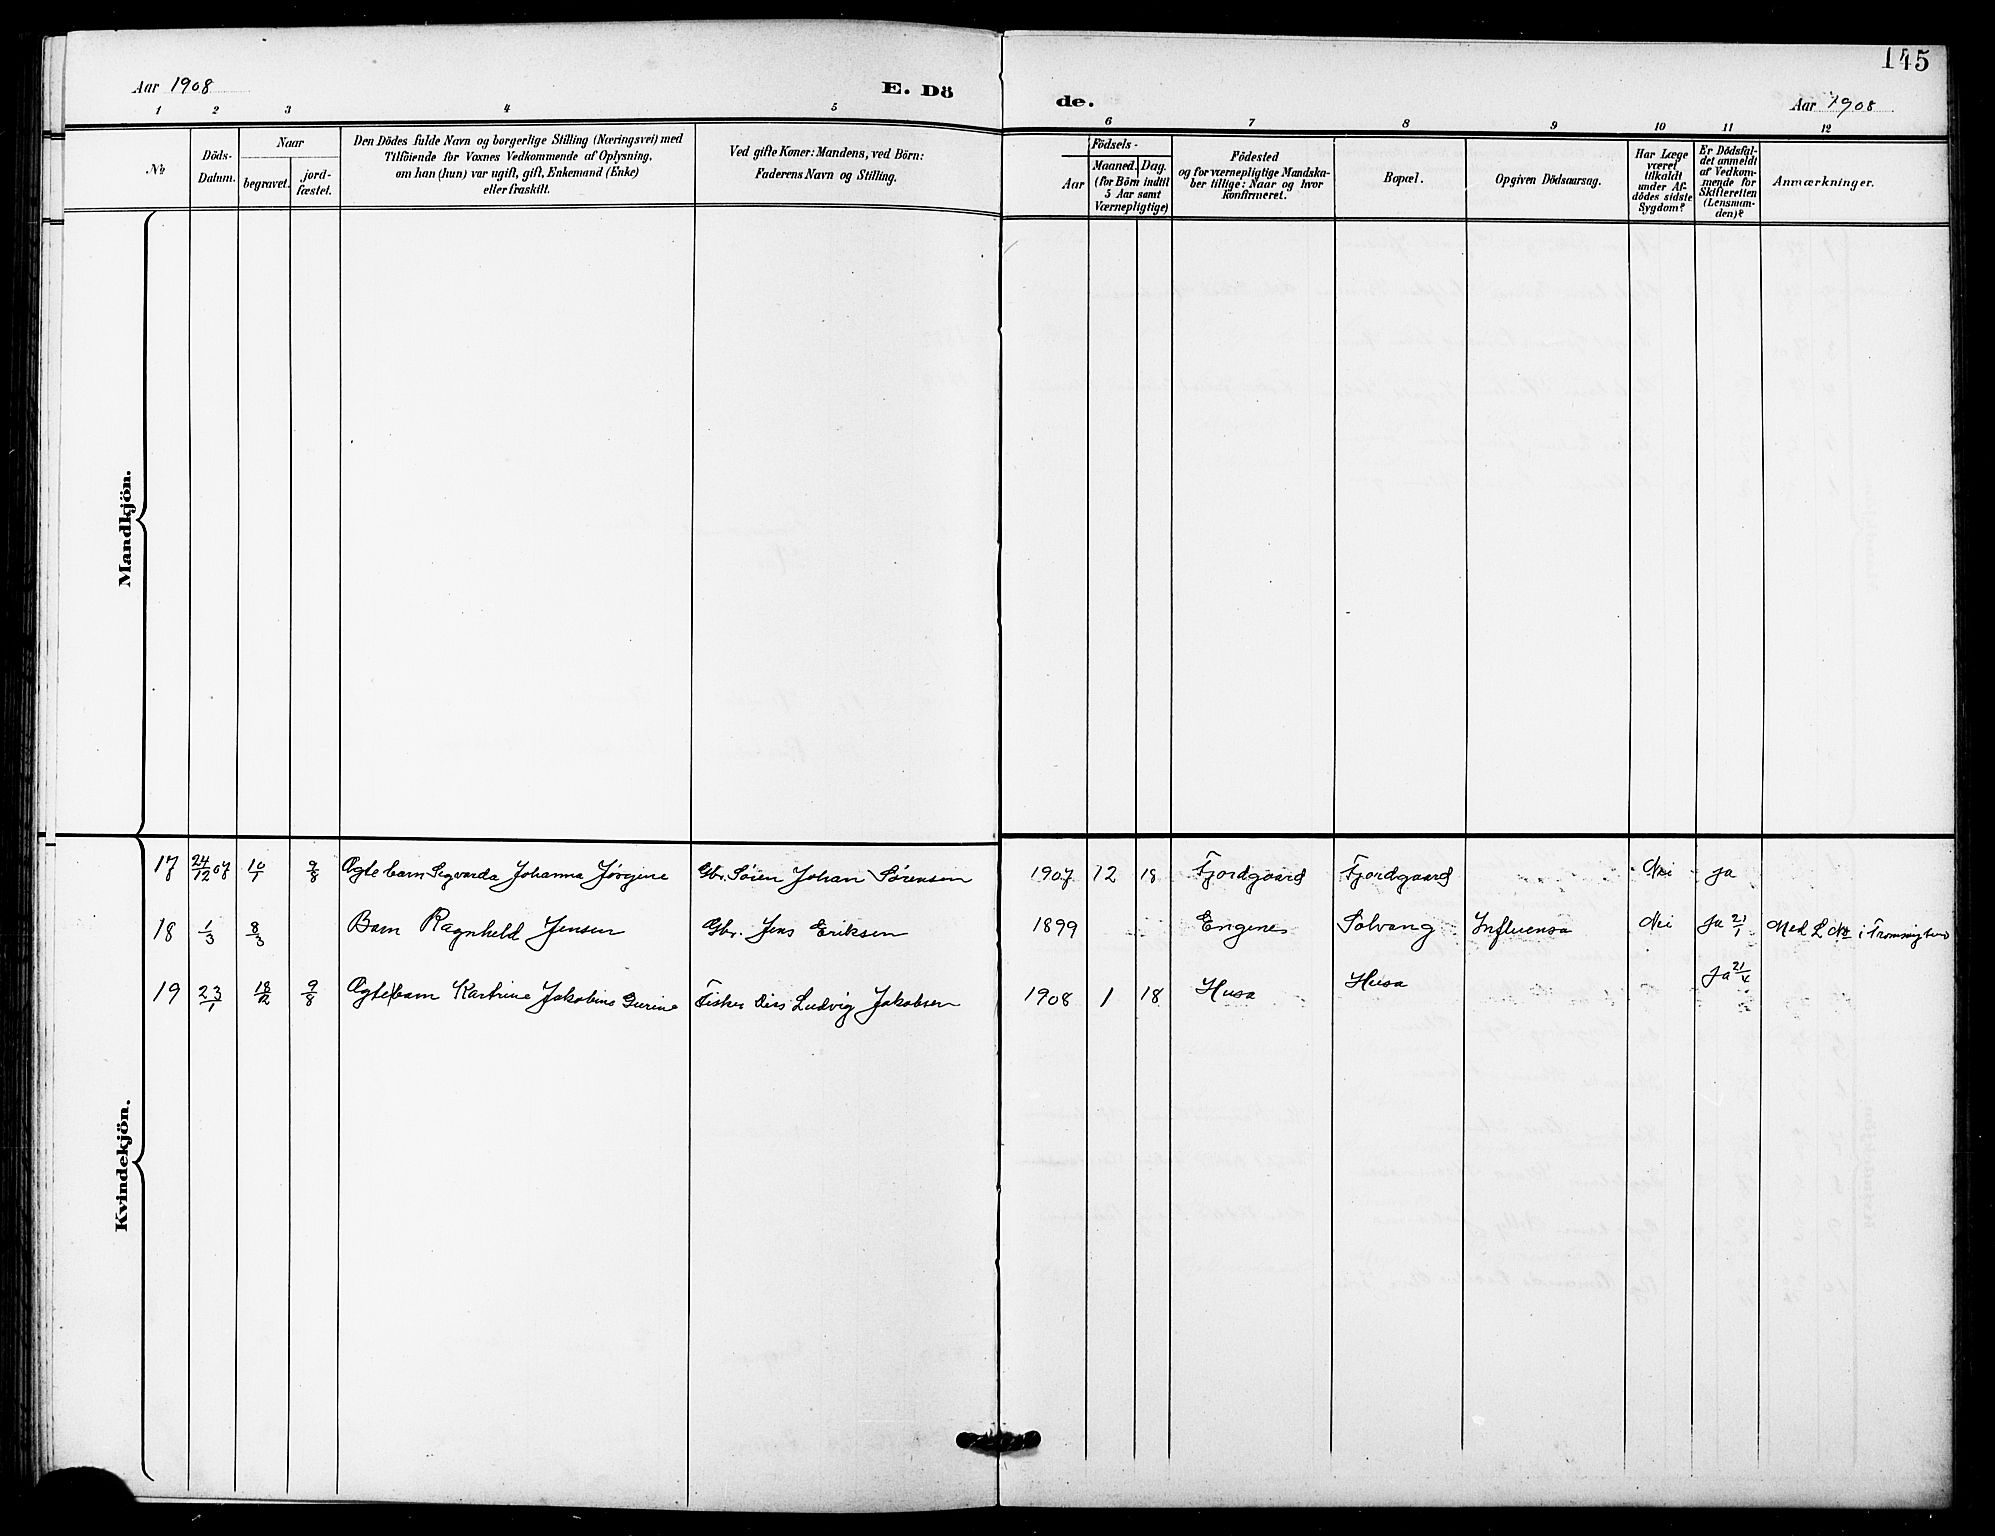 145
Aar 1908
E. Dö
de.
Aar 1908
1 2 3 4 5
6 7 8 9 10 11 12
No
Döds-
Datum.
Naar
begravet.
jord-
fæstet.
Den Dödes fulde Navn og borgerlige Stilling (Næringsvei) med
Tilföiende for Voxnes Vedkommende af Oplysning,
om han (hun) var ugift, gift, Enkemand (Enke)
eller fraskilt.
Ved gifte Koner: Mandens, ved Börn:
Faderens Navn og Stilling.
Födsels-
Aar
Maaned. Dag.
(for Börn indtil
5 Aar samt
Værnepligtige)
Födested
og for værnepligtige Mandska-
ber tillige: Naar og hvor
konfirmeret.
Bopæl.
Opgiven Dödsaarsag.
Har Læge
været
tilkaldt
under Af-
dödes sidste
Sygdom?
Er Dödsfal-
det anmeldt
af Vedkom-
mende for
Skifteretten
(Lensman-
den)?
Anmærkninger.
Mandkjön.
Kvindekjön.
17 24/12 07 10/1 9/8 Ægtebarn Segvarda Johanna Jørgine Gbr. Sören Johan Sörensen 1907 12 18 Fjordgaard Fjordgaard Nei Ja
18 1/3 8/3 Barn Ragnheld Jensen Gbr. Jens Eriksen 1899 Engenes Solvang Influensa Nei Ja 21/1 Med L No i
19 23/1 18/2 9/8 Ægtebarn Kartrine Jakobine Fisker Ludvig Jakobsen 1908 1 18 Husa Husa Ja 21/4